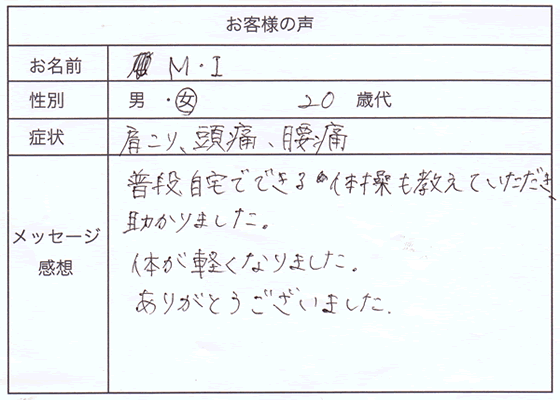 お客様の声
お名前 M・I
性別 男・女 20 歳代
症状 肩こり、頭痛、腰痛
メッセージ
感想
普段自宅でできる体操も教えていただき、
助かりました。
体が軽くなりました。
ありがとうございました.